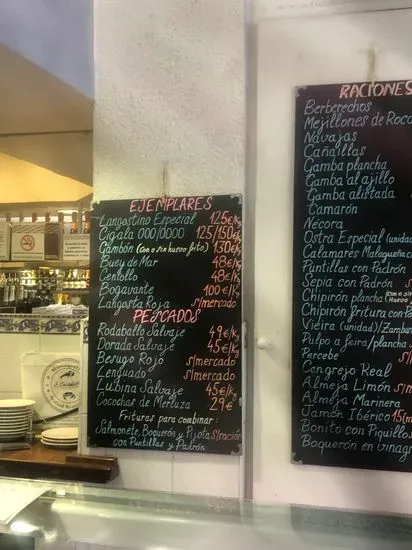 EJEMPLARES
Langostino Especial 125€/K
Cigala 000/0000 125/150€/K
Gambón (con o sin huevo frito) 130€/K
Buey de Mar 48€/K
Centollo 48€/K
Bogavante 100€/K
Langosta Roja s/mercado
PESCADOS
Rodaballo Salvaje 49€/K
Dorada Salvaje 45€/K
Besugo Rojo s/mercado
Lenguado s/mercado
Lubina Salvaje 45€/K
Cocochas de Merluza 21€
Frituras para combinar:
Salmonete, Boquerón y Pijota s/ración
con Puntillas y Padrón
RACIONES
Berberechos
Mejillones de Roca
Navajas
Cañaillas
Gamba plancha
Gamba al ajillo
Gamba alistada
Camarón
Nécora
Ostra Especial (unidad
Calamares Malagueña
Puntillas con Padrón
Sepia con Padrón
Chipirón plancha (con o sin
Chipirón fritura con Padrón
Vieira (unidad)/Zambur
Pulpo a feira/plancha
Percebe s/
Cangrejo Real
Almeja Limón s/m
Almeja Marinera
Jamón Ibérico 15
Bonito con Piquillos
Boquerón en vinag